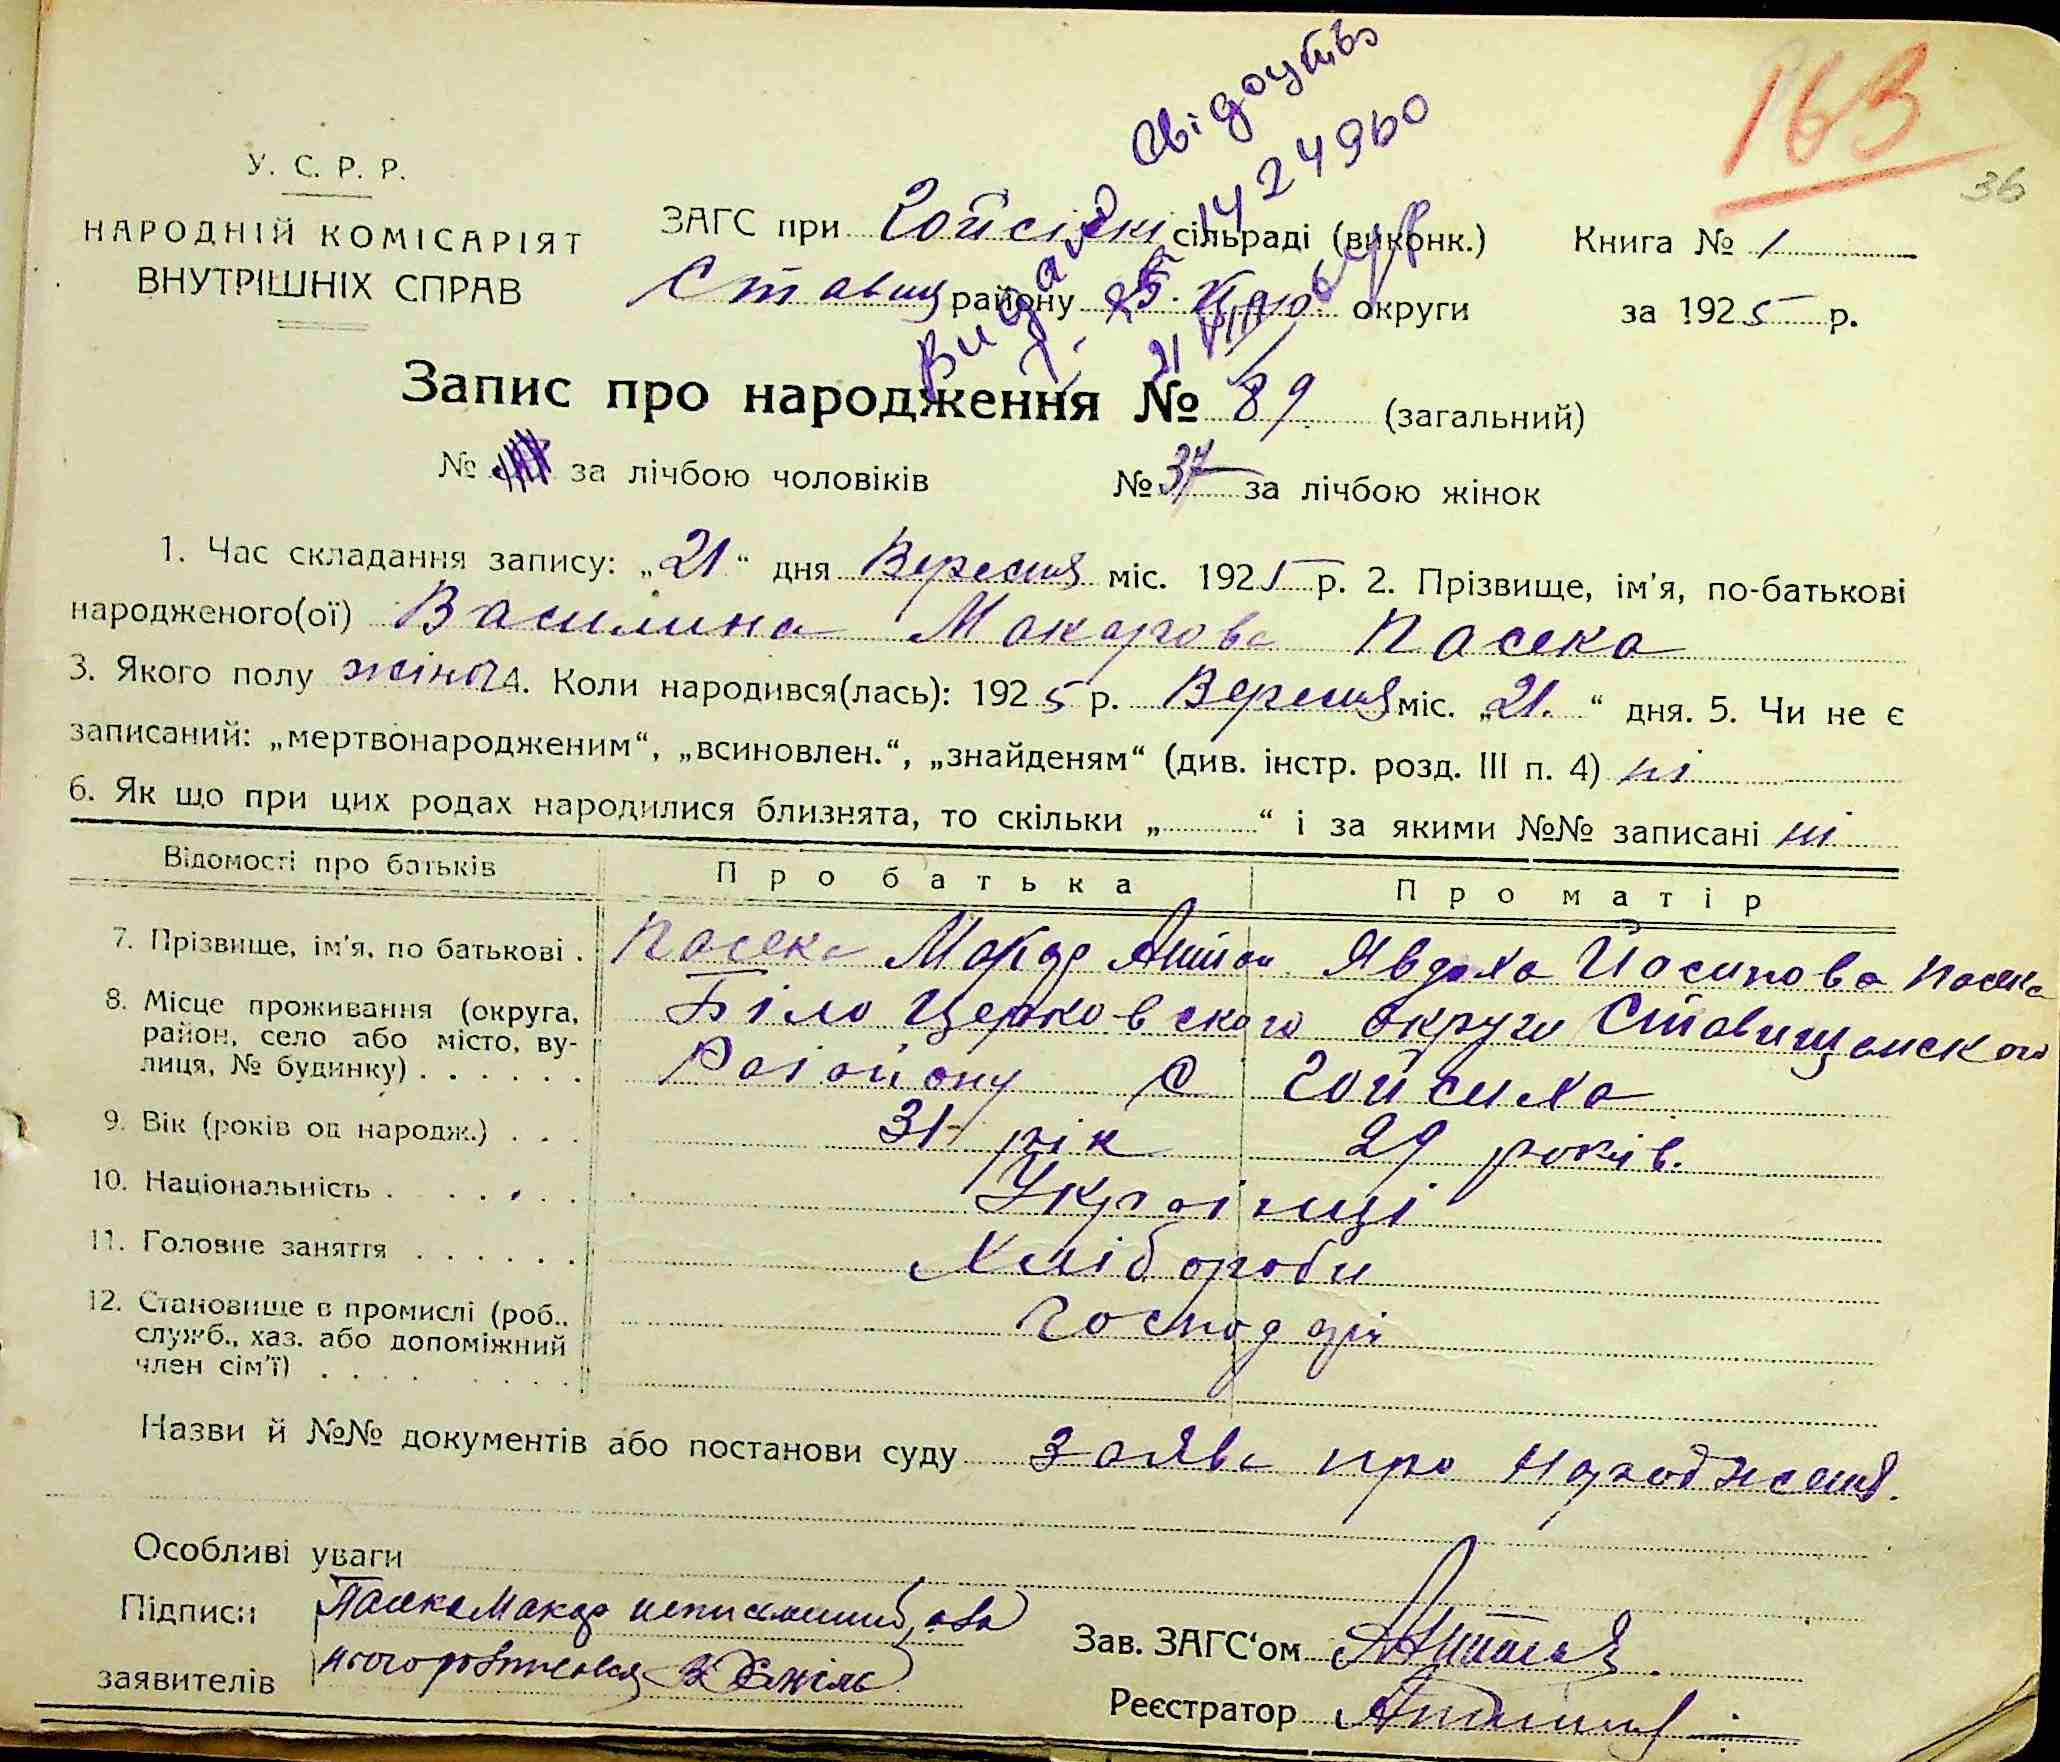 163
36
Видано свідоцтво
1424960
У. С. Р. Р.
НАРОДНІЙ КОМІСАРІЯТ
ВНУТРІШНІХ СПРАВ
ЗАГС при сільраді (виконк.)
Ставищ району округи
Книга № 1
за 1925 р.
Запис про народження № 89 (загальний)
№ за лічбою чоловіків № 37 за лічбою жінок
1. Час складання запису: „21“ дня Вересня міс. 1925 р. 2. Прізвище, ім'я, по-батькові
народженого(ої) Василина Макарова Пасека
3. Якого полу жіноч 4. Коли народився(лась): 1925 р. Вересня міс. „21.“ дня. 5. Чи не є
записаний: „мертвонародженим“, „всиновлен.“, „знайденям“ (див. інстр. розд. III п. 4) ні
6. Як що при цих родах народилися близнята, то скільки „ “ і за якими №№ записані ні
Відомості про батьків Про батька Про матір
7. Прізвище, ім'я, по батькові . Пасека Макар Антон Явдоха Йосипова Пасека
8. Місце проживання (округа, район, село або місто, вулиця, № будинку) . . . . . . Біло Церковского округи Ставищанского
Району С Гойсиха
9. Вік (років од народж.) . . . 31 рік 29 років.
10. Національність . . . . . Українці
11. Головне заняття . . . . . . Хлібороби
12. Становище в промислі (роб., служб., хаз. або допоміжний член сім'ї) . . . . Господарі
Назви й №№ документів або постанови суду заява про народження.
Особливі уваги
Підписи Пасека Макар неписьменний, а за
заявителів нього розписався
Зав. ЗАГС'ом
Реєстратор